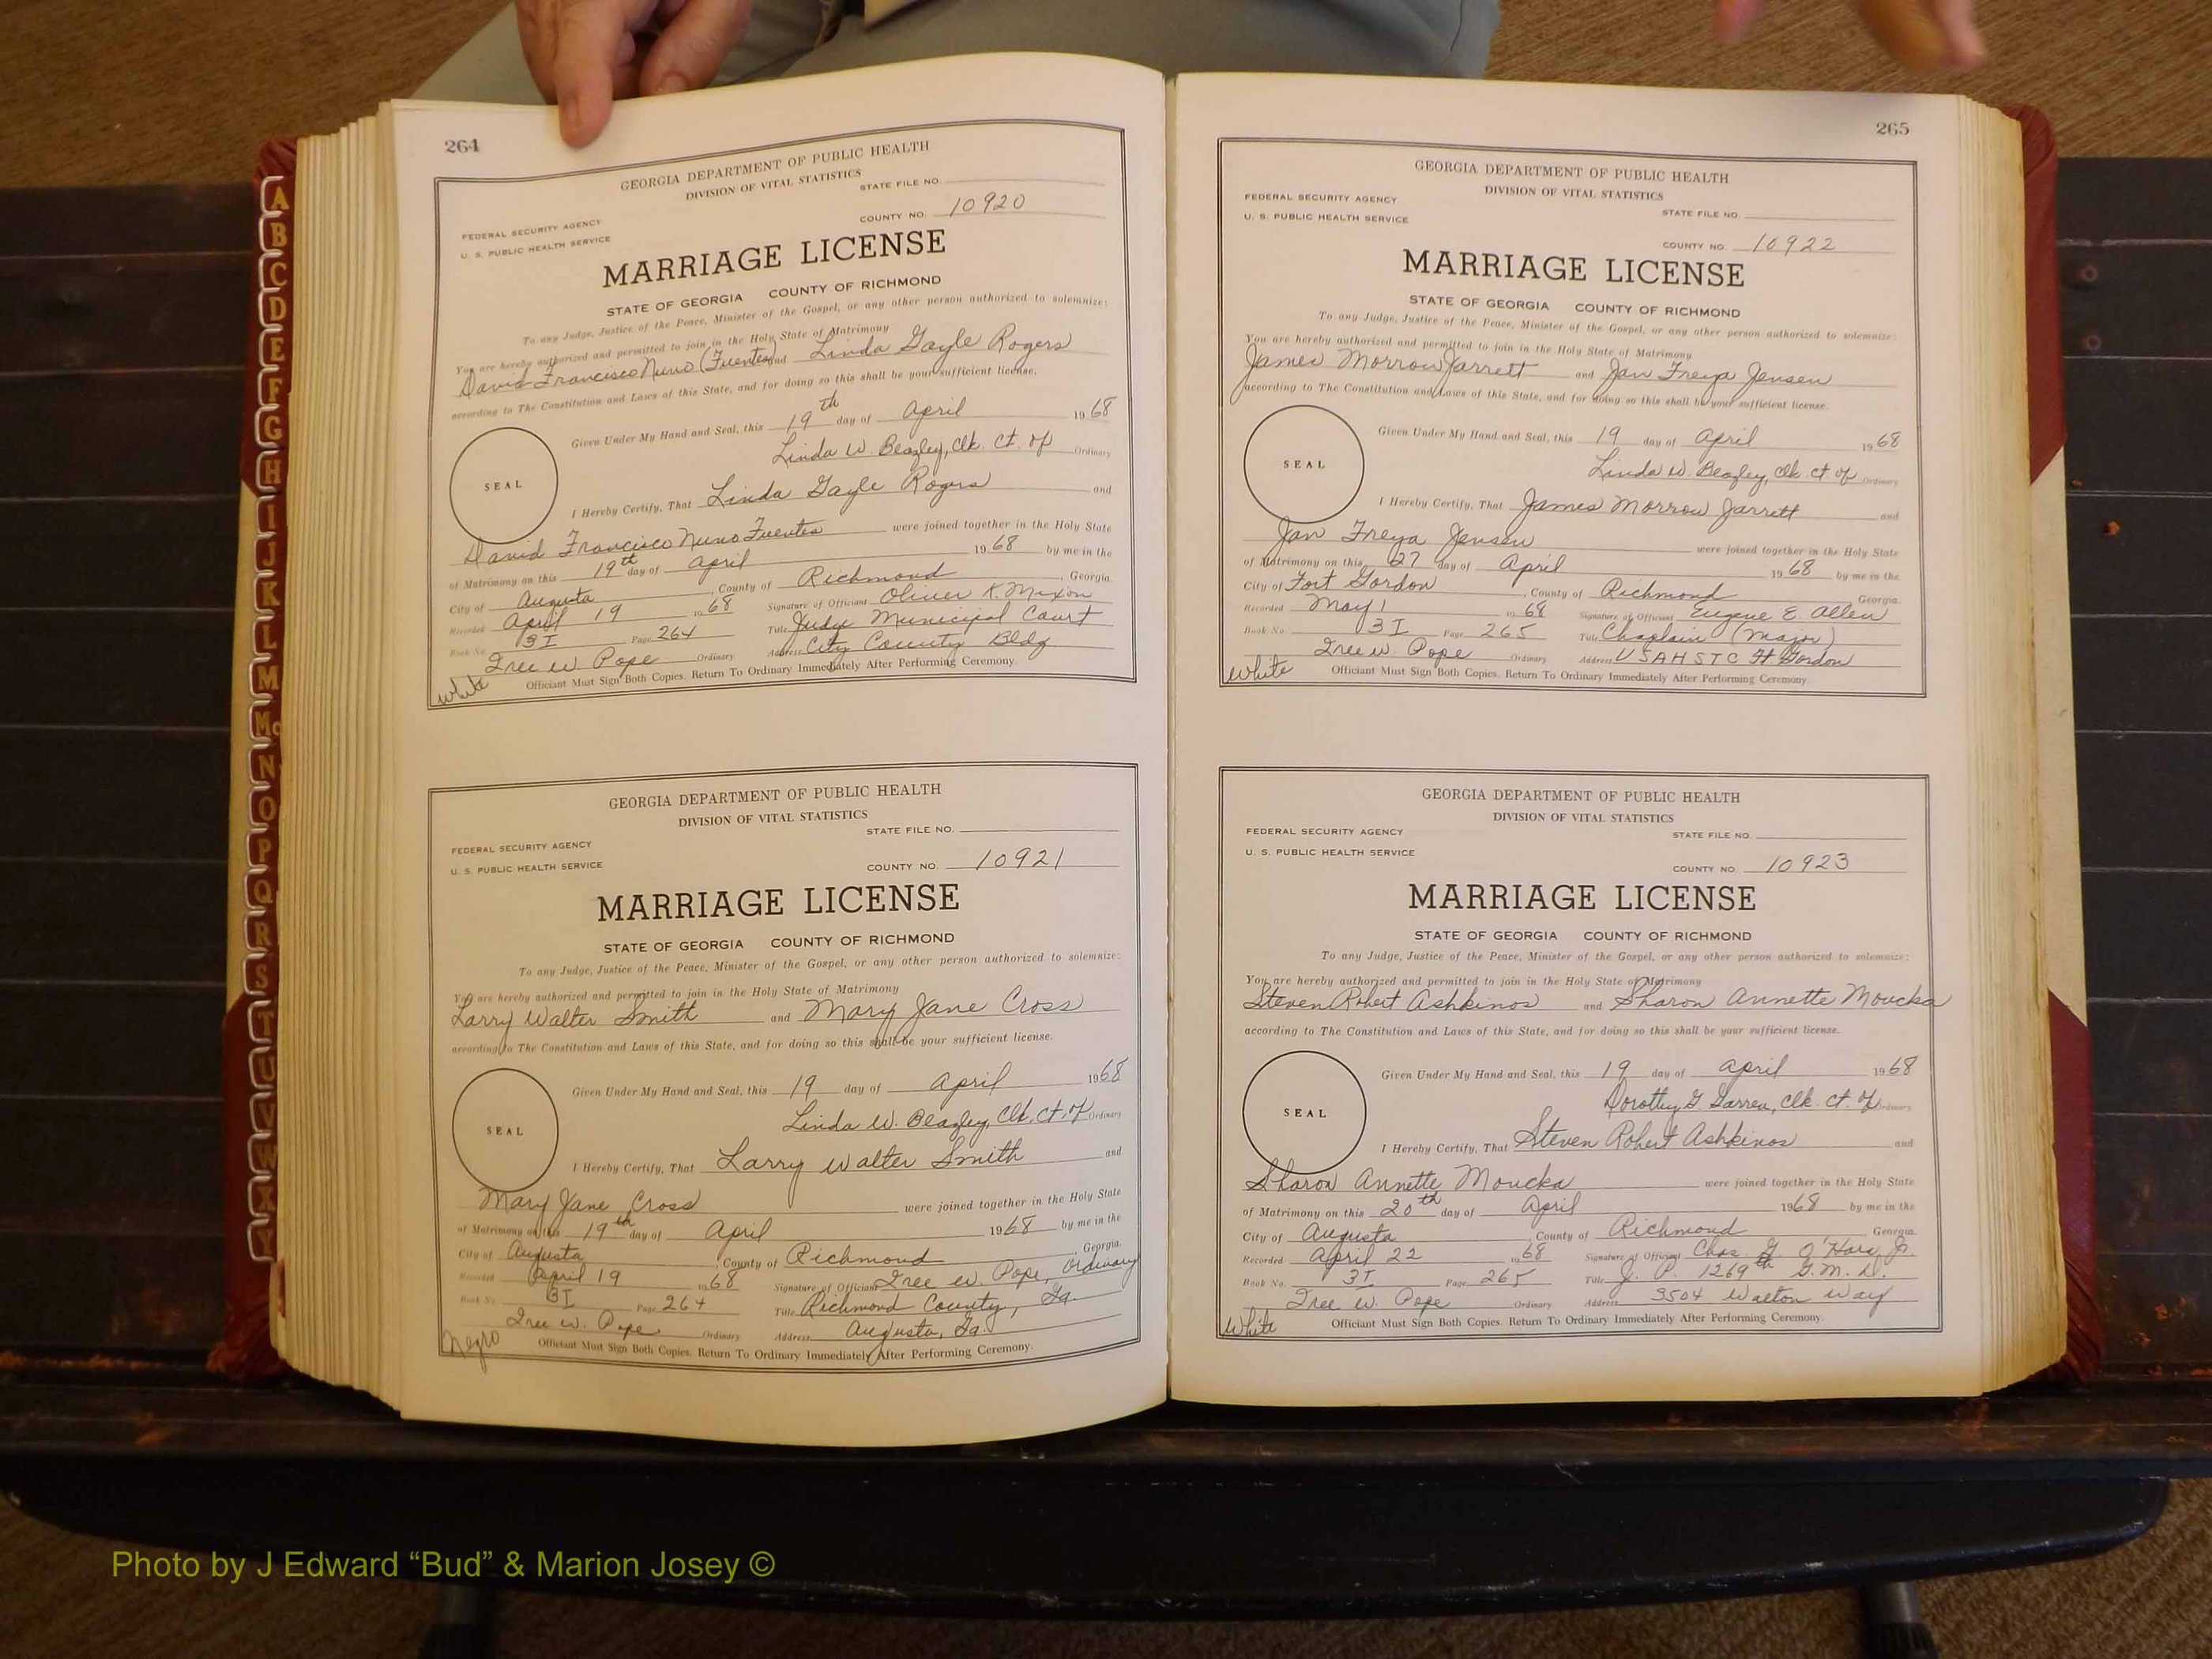 264
GEORGIA DEPARTMENT OF PUBLIC HEALTH
DIVISION OF VITAL STATISTICS
STATE FILE NO.
FEDERAL SECURITY AGENCY
COUNTY NO. 10920
U. S. PUBLIC HEALTH SERVICE
MARRIAGE LICENSE
STATE OF GEORGIA COUNTY OF RICHMOND
To any Judge, Justice of the Peace, Minister of the Gospel, or any other person authorized to solemnize:
You are hereby authorized and permitted to join in the Holy State of Matrimony
David Francisco Nuno (Fuentes) and Linda Gayle Rogers
according to The Constitution and Laws of this State, and for doing so this shall be your sufficient license.
Given Under My Hand and Seal, this 19th day of April 1968
Linda W. Beazley, Clk. Ct. of Ordinary
SEAL
I Hereby Certify, That Linda Gayle Rogers and
David Francisco Nuno Fuentes were joined together in the Holy State
of Matrimony on this 19th day of April 1968 by me in the
City of Augusta, County of Richmond, Georgia.
Recorded April 19 1968 Signature of Officiant Oliver K. Mixon
Book No. 3I Page 264 Title Judge Municipal Court
Ordinary Address City County Bldg
White Officiant Must Sign Both Copies. Return To Ordinary Immediately After Performing Ceremony.
GEORGIA DEPARTMENT OF PUBLIC HEALTH
DIVISION OF VITAL STATISTICS
STATE FILE NO.
FEDERAL SECURITY AGENCY
U. S. PUBLIC HEALTH SERVICE COUNTY NO. 10921
MARRIAGE LICENSE
STATE OF GEORGIA COUNTY OF RICHMOND
To any Judge, Justice of the Peace, Minister of the Gospel, or any other person authorized to solemnize:
You are hereby authorized and permitted to join in the Holy State of Matrimony
Larry Walter Smith and Mary Jane Cross
according to The Constitution and Laws of this State, and for doing so this shall be your sufficient license.
Given Under My Hand and Seal, this 19 day of April 1968
Linda W. Beazley, Clk. Ct. of Ordinary
SEAL
I Hereby Certify, That Larry Walter Smith and
Mary Jane Cross were joined together in the Holy State
of Matrimony on this 19th day of April 1968 by me in the
City of Augusta, County of Richmond, Georgia.
Recorded April 19 1968 Signature of Officiant W. Pope, Ordinary
Book No. 3I Page 264 Title Richmond County, Ga.
W. Pope Ordinary Address Augusta, Ga.
Negro Officiant Must Sign Both Copies. Return To Ordinary Immediately After Performing Ceremony.
265
GEORGIA DEPARTMENT OF PUBLIC HEALTH
DIVISION OF VITAL STATISTICS
FEDERAL SECURITY AGENCY
STATE FILE NO.
U. S. PUBLIC HEALTH SERVICE
COUNTY NO. 10922
MARRIAGE LICENSE
STATE OF GEORGIA COUNTY OF RICHMOND
To any Judge, Justice of the Peace, Minister of the Gospel, or any other person authorized to solemnize:
You are hereby authorized and permitted to join in the Holy State of Matrimony
James Morrow Jarrett and Jan Freya Jensen
according to The Constitution and Laws of this State, and for doing so this shall be your sufficient license.
Given Under My Hand and Seal, this 19 day of April 1968
Linda W. Beazley, Clk. Ct of Ordinary
SEAL
I Hereby Certify, That James Morrow Jarrett and
Jan Freya Jensen were joined together in the Holy State
of Matrimony on this 27 day of April 1968 by me in the
City of Fort Gordon, County of Richmond Georgia.
Recorded May 1 1968 Signature of Officiant Eugene E. Allen
Book No. 3I Page 265 Title Chaplain (Major)
W. Pope Ordinary Address USAHSTC Ft Gordon
White Officiant Must Sign Both Copies. Return To Ordinary Immediately After Performing Ceremony.
GEORGIA DEPARTMENT OF PUBLIC HEALTH
DIVISION OF VITAL STATISTICS
FEDERAL SECURITY AGENCY STATE FILE NO.
U. S. PUBLIC HEALTH SERVICE
COUNTY NO. 10923
MARRIAGE LICENSE
STATE OF GEORGIA COUNTY OF RICHMOND
To any Judge, Justice of the Peace, Minister of the Gospel, or any other person authorized to solemnize:
You are hereby authorized and permitted to join in the Holy State of Matrimony
Steven Robert Ashkinos and Sharon Annette Moucka
according to The Constitution and Laws of this State, and for doing so this shall be your sufficient license.
Given Under My Hand and Seal, this 19 day of April 1968
Dorothy G. Clk. Ct. of Ordinary
SEAL
I Hereby Certify, That Steven Robert Ashkinos and
Sharon Annette Moucka were joined together in the Holy State
of Matrimony on this 20th day of April 1968 by me in the
City of Augusta, County of Richmond Georgia.
Recorded April 22 1968 Signature of Officiant Chas. G. O'Hara, Jr.
Book No. 3I Page 265 Title J. P. 1269th G. M. D.
W. Pope Ordinary Address 3504 Walton Way
White Officiant Must Sign Both Copies. Return To Ordinary Immediately After Performing Ceremony.
A
B
C
D
E
F
G
H
I
J
K
L
M
Mc
N
O
P
Q
R
S
T
U
V
W
X
Y
Photo by J Edward “Bud” & Marion Josey ©